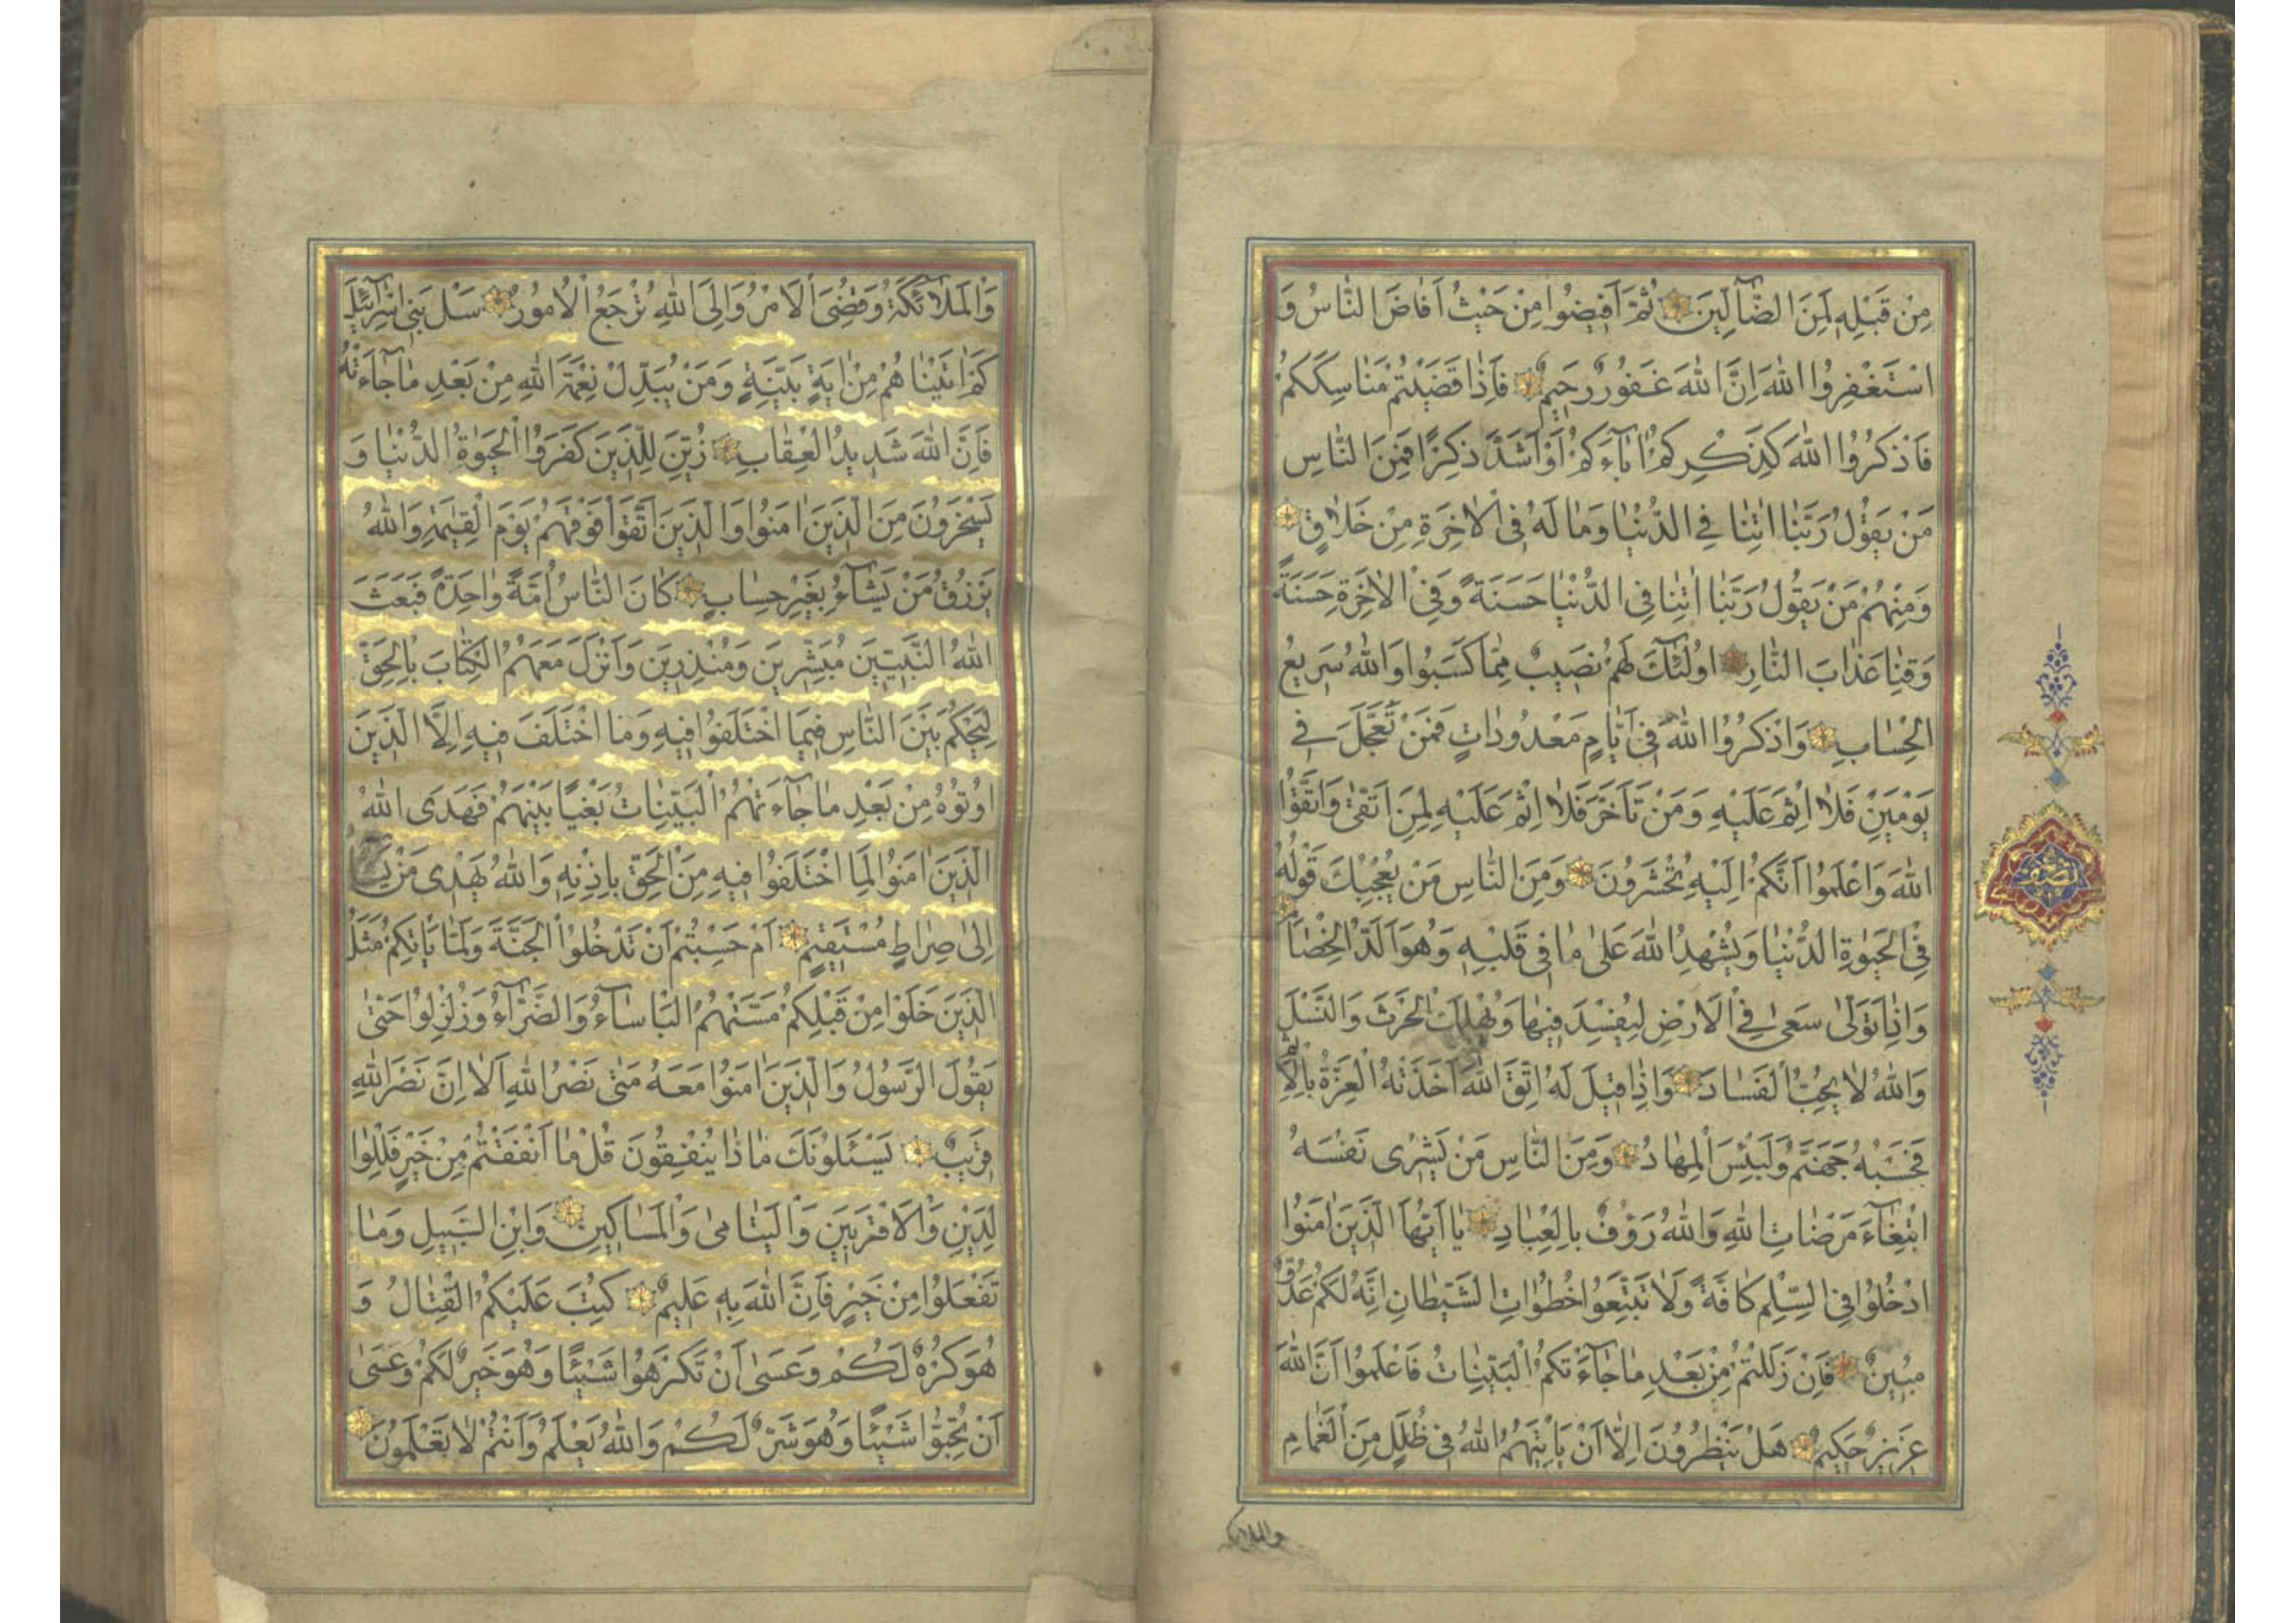 مِنْ قَبْلِهِ لَمِنَ الضَّآلِّينَ ثُمَّ اَفِيضُوا مِنْ حَيْثُ اَفَاضَ النَّاسُ وَ
اسْتَغْفِرُوا اللهَ اِنَّ اللهَ غَفُورٌ رَحِيمٌ فَاِذَا قَضَيْتُمْ مَنَاسِكَكُمْ
فَاذْكُرُوا اللهَ كَذِكْرِكُمْ اٰبَآءَكُمْ اَوْ اَشَدَّ ذِكْرًا فَمِنَ النَّاسِ
مَنْ يَقُولُ رَبَّنَا اٰتِنَا فِي الدُّنْيَا وَمَا لَهُ فِي الْاٰخِرَةِ مِنْ خَلَاقٍ
وَمِنْهُمْ مَنْ يَقُولُ رَبَّنَا اٰتِنَا فِي الدُّنْيَا حَسَنَةً وَفِي الْاٰخِرَةِ حَسَنَةً
وَقِنَا عَذَابَ النَّارِ اُولٰئِكَ لَهُمْ نَصِيبٌ مِمَّا كَسَبُوا وَاللهُ سَرِيعُ
الْحِسَابِ وَاذْكُرُوا اللهَ فِي اَيَّامٍ مَعْدُودَاتٍ فَمَنْ تَعَجَّلَ فِي
يَوْمَيْنِ فَلَا اِثْمَ عَلَيْهِ وَمَنْ تَاَخَّرَ فَلَا اِثْمَ عَلَيْهِ لِمَنِ اتَّقٰى وَاتَّقُوا
اللهَ وَاعْلَمُوا اَنَّكُمْ اِلَيْهِ تُحْشَرُونَ وَمِنَ النَّاسِ مَنْ يُعْجِبُكَ قَوْلُهُ
فِي الْحَيٰوةِ الدُّنْيَا وَيُشْهِدُ اللهَ عَلٰى مَا فِي قَلْبِهِ وَهُوَ اَلَدُّ الْخِصَامِ
وَاِذَا تَوَلّٰى سَعٰى فِي الْاَرْضِ لِيُفْسِدَ فِيهَا وَيُهْلِكَ الْحَرْثَ وَالنَّسْلَ
وَاللهُ لَا يُحِبُّ الْفَسَادَ وَاِذَا قِيلَ لَهُ اتَّقِ اللهَ اَخَذَتْهُ الْعِزَّةُ بِالْاِثْمِ
فَحَسْبُهُ جَهَنَّمُ وَلَبِئْسَ الْمِهَادُ وَمِنَ النَّاسِ مَنْ يَشْرِي نَفْسَهُ
ابْتِغَآءَ مَرْضَاتِ اللهِ وَاللهُ رَؤُفٌ بِالْعِبَادِ يَا اَيُّهَا الَّذِينَ اٰمَنُوا
ادْخُلُوا فِي السِّلْمِ كَافَّةً وَلَا تَتَّبِعُوا خُطُوَاتِ الشَّيْطَانِ اِنَّهُ لَكُمْ عَدُوٌّ
مُبِينٌ فَاِنْ زَلَلْتُمْ مِنْ بَعْدِ مَا جَآءَتْكُمُ الْبَيِّنَاتُ فَاعْلَمُوا اَنَّ اللهَ
عَزِيزٌ حَكِيمٌ هَلْ يَنْظُرُونَ اِلَّا اَنْ يَاْتِيَهُمُ اللهُ فِي ظُلَلٍ مِنَ الْغَمَامِ
والملائكة
نصف
وَالْمَلَائِكَةُ وَقُضِيَ الْاَمْرُ وَاِلَى اللهِ تُرْجَعُ الْاُمُورُ سَلْ بَنِي اِسْرَآئِيلَ
كَمْ اٰتَيْنَاهُمْ مِنْ اٰيَةٍ بَيِّنَةٍ وَمَنْ يُبَدِّلْ نِعْمَةَ اللهِ مِنْ بَعْدِ مَا جَآءَتْهُ
فَاِنَّ اللهَ شَدِيدُ الْعِقَابِ زُيِّنَ لِلَّذِينَ كَفَرُوا الْحَيٰوةُ الدُّنْيَا وَ
يَسْخَرُونَ مِنَ الَّذِينَ اٰمَنُوا وَالَّذِينَ اتَّقَوْا فَوْقَهُمْ يَوْمَ الْقِيٰمَةِ وَاللهُ
يَرْزُقُ مَنْ يَشَآءُ بِغَيْرِ حِسَابٍ كَانَ النَّاسُ اُمَّةً وَاحِدَةً فَبَعَثَ
اللهُ النَّبِيِّينَ مُبَشِّرِينَ وَمُنْذِرِينَ وَاَنْزَلَ مَعَهُمُ الْكِتَابَ بِالْحَقِّ
لِيَحْكُمَ بَيْنَ النَّاسِ فِيمَا اخْتَلَفُوا فِيهِ وَمَا اخْتَلَفَ فِيهِ اِلَّا الَّذِينَ
اُوتُوهُ مِنْ بَعْدِ مَا جَآءَتْهُمُ الْبَيِّنَاتُ بَغْيًا بَيْنَهُمْ فَهَدَى اللهُ
الَّذِينَ اٰمَنُوا لِمَا اخْتَلَفُوا فِيهِ مِنَ الْحَقِّ بِاِذْنِهِ وَاللهُ يَهْدِي مَنْ يَشَا
اِلٰى صِرَاطٍ مُسْتَقِيمٍ اَمْ حَسِبْتُمْ اَنْ تَدْخُلُوا الْجَنَّةَ وَلَمَّا يَاْتِكُمْ مَثَلُ
الَّذِينَ خَلَوْا مِنْ قَبْلِكُمْ مَسَّتْهُمُ الْبَاْسَآءُ وَالضَّرَّآءُ وَزُلْزِلُوا حَتّٰى
يَقُولَ الرَّسُولُ وَالَّذِينَ اٰمَنُوا مَعَهُ مَتٰى نَصْرُ اللهِ اَلَا اِنَّ نَصْرَ اللهِ
قَرِيبٌ يَسْئَلُونَكَ مَاذَا يُنْفِقُونَ قُلْ مَا اَنْفَقْتُمْ مِنْ خَيْرٍ فَلِلْوَا
لِدَيْنِ وَالْاَقْرَبِينَ وَالْيَتَامٰى وَالْمَسَاكِينِ وَابْنِ السَّبِيلِ وَمَا
تَفْعَلُوا مِنْ خَيْرٍ فَاِنَّ اللهَ بِهِ عَلِيمٌ كُتِبَ عَلَيْكُمُ الْقِتَالُ وَ
هُوَ كُرْهٌ لَكُمْ وَعَسٰى اَنْ تَكْرَهُوا شَيْئًا وَهُوَ خَيْرٌ لَكُمْ وَعَسٰى
اَنْ تُحِبُّوا شَيْئًا وَهُوَ شَرٌّ لَكُمْ وَاللهُ يَعْلَمُ وَاَنْتُمْ لَا تَعْلَمُونَ